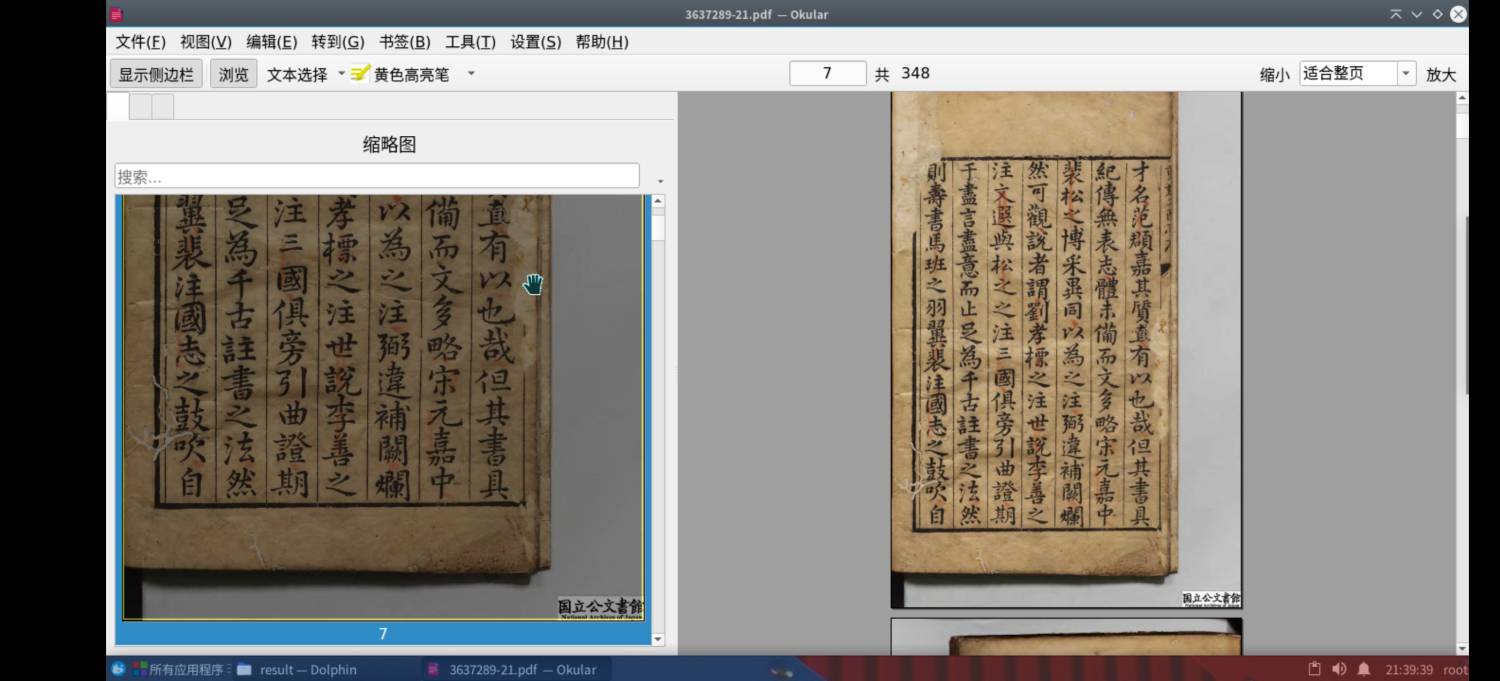 3637289-21.pdf — Okular
文件(F) 视图(V) 编辑(E) 转到(G) 书签(B) 工具(T) 设置(S) 帮助(H)
显示侧边栏 浏览 文本选择 黄色高亮笔 7 共 348 缩小 适合整页 放大
缩略图
搜索...
直有以也哉但其書具
備而文多略宋元嘉中
以為之注弼違補闕爛
孝標之注世説李善之
注三國俱旁引曲證期
足為千古註書之法然
翼裴注國志之鼓吹自
国立公文書館
National Archives of Japan
7
才名范頵嘉其質直有以也哉但其書具
紀傳無表志體未備而文多略宋元嘉中
裴松之博采異同以為之注弼違補闕爛
然可觀説者謂劉孝標之注世説李善之
注文選與松之之注三國俱旁引曲證期
于盡言盡意而止足為千古註書之法然
則壽書馬班之羽翼裴注國志之鼓吹自
国立公文書館
National Archives of Japan
所有应用程序 result — Dolphin 3637289-21.pdf — Okular 21:39:39 root